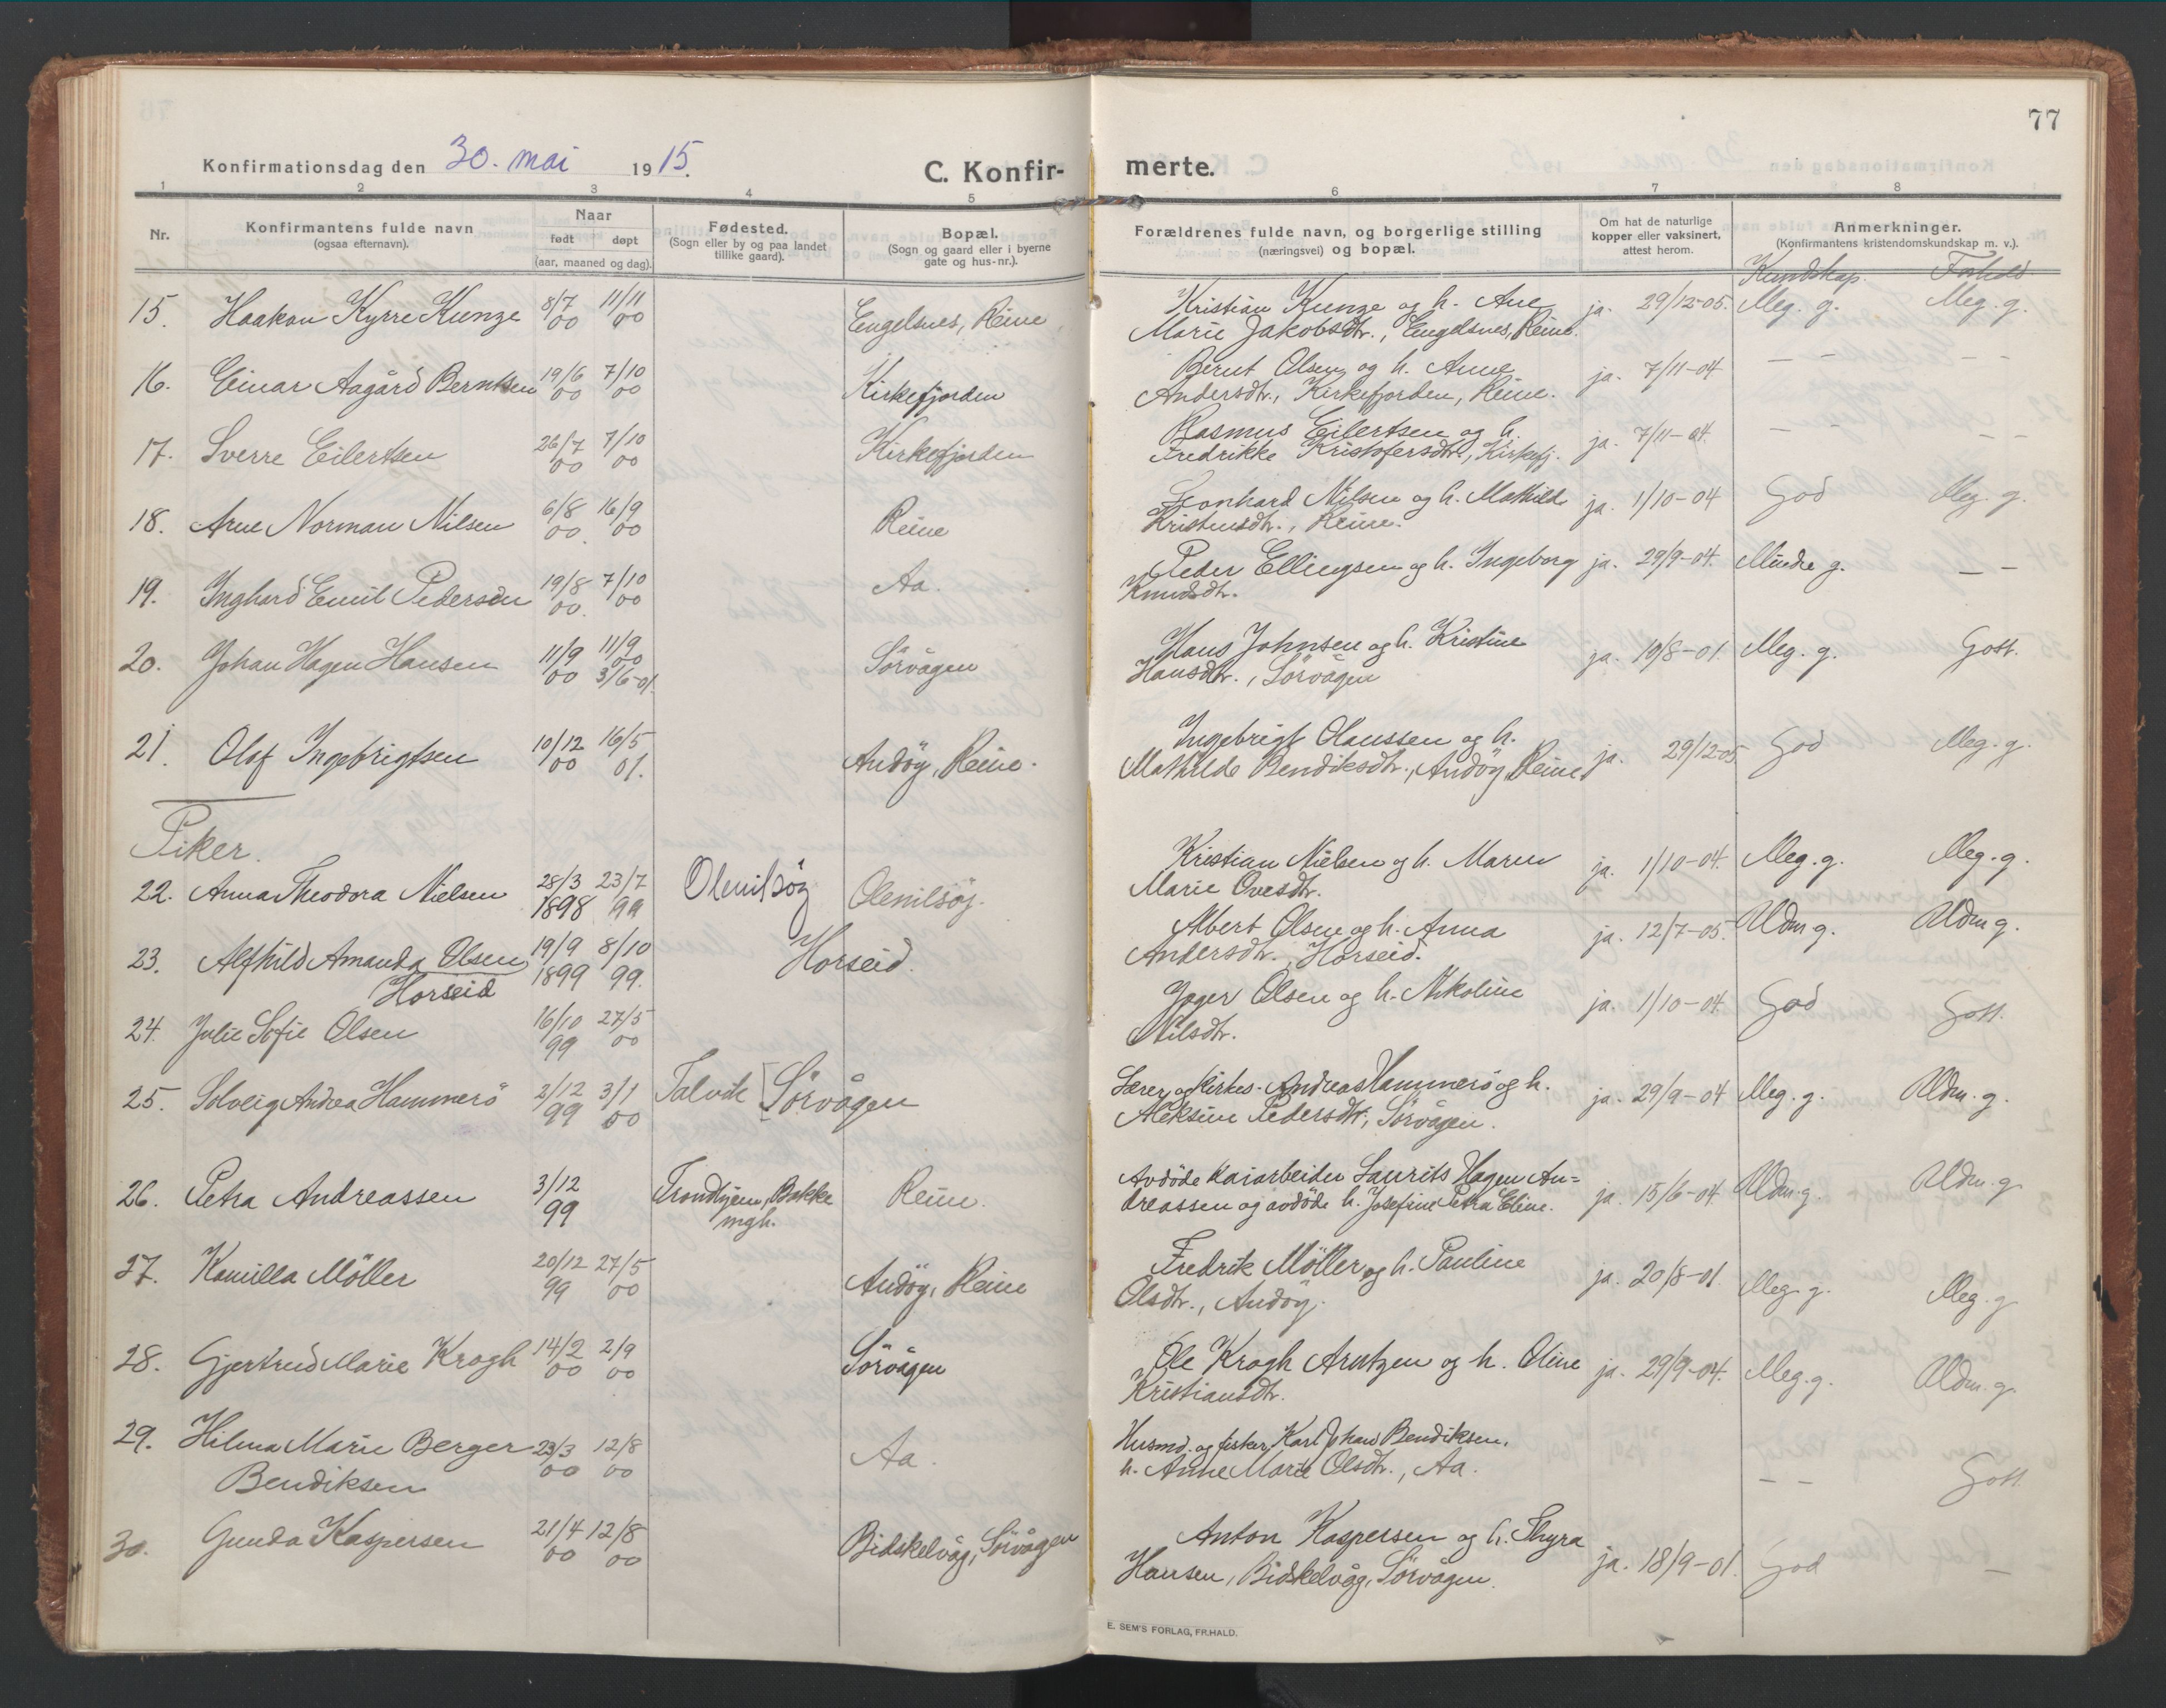 77
Konfirmationsdag den 30. mai 1915.
C. Konfirmerte.
1 2 3 4 5 6 7 8
Nr.
Konfirmantens fulde navn
(ogsaa efternavn).
Naar
født døpt
(aar, maaned og dag).
Fødested.
(Sogn eller by og paa landet
tillike gaard).
Bopæl.
(Sogn og gaard eller i byerne
gate og hus-nr.).
Forældrenes fulde navn, og borgerlige stilling
(næringsvei) og bopæl.
Om hat de naturlige
kopper eller vaksinert,
attest herom.
Anmerkninger.
(Konfirmantens kristendomskundskap m. v.).
Kundskap. Forhold.
15. Haakon Kyrre Kunze 8/7 00 11/11 00 Engelsnes, Reine
Kristian Kunze og h. Ane
Marie Jakobsdtr., Engelsnes, Reine.
ja. 29/12-05. Meg. g. Meg. g.
16. Einar Aagård Berntsen 19/6 00 7/10 00 Kirkefjorden
Bernt Olsen og h. Anne
Andersdtr., Kirkefjorden, Reine.
ja. 7/11-04 — — — —
17. Sverre Eilertsen 26/7 00 7/10 00 Kirkefjorden
Rasmus Eilertsen og h.
Fredrikke Kristofersdtr., Kirkefj.
ja. 7/11-04. — — — —
18. Arne Norman Nilsen 6/8 00. 16/9 00 Reine
Leonhard Nilsen og h. Mathilde
Kristensdtr., Reine.
ja. 1/10-04 God Meg. g.
19. Inghard Emil Pedersen 19/8 00. 7/10 00 Aa.
Peder Ellingsen og h. Ingeborg
Knudsdtr.
ja. 29/9-04. Mindre g. — —
20. Johan Hagen Hansen 11/9 00 11/9 00 3/6-01. Sörvågen
Hans Johnsen og h. Kristine
Hansdtr., Sörvågen
ja. 10/8-01. Meg. g. Gott.
21. Olof Ingebrigtsen 10/12 00 16/5 01. Andöy, Reine.
Ingebrigt Olaussen og h.
Mathilde Bendiksdtr., Andöy, Reine
ja. 29/12-05 God Meg. g.
Piker.
22. Anna Theodora Nielsen 28/3 1898 23/7 99 Olenilsöy Olenilsöy.
Kristian Nielsen og h. Maren
Marie Ovesdtr.
ja. 1/10-04. Meg. g. Meg. g.
23. Alfhild Amanda Olsen
Horseid
19/9 1899 8/10 99. Horseid.
Albert Olsen og h. Anna
Andersdtr., Horseid.
ja. 12/7-05. Udm g. Udm g.
24. Julie Sofie Olsen 16/10 99 27/5 00
Olsen og h. Nikoline
Nilsdtr.
ja. 1/10-04. God Gott.
25. Solveig Andrea Hammerö 2/12 99 3/1 00 Talvik Sörvågen
Lærer og kirkes. Andreas Hammerö og h.
Aleksine Pedersdtr., Sörvågen.
ja. 29/9-04 Meg. g. Udm. g.
26. Petra Andreassen 3/12 99 Trondhjem, Bakke
mgh.
Reine.
Avdöde kaiarbeider Laurits Hagen An=
dreassen og avdöde h. Josefine Petra Eline.
ja. 15/6-04. Udm. g. Udm. g.
27. Kamilla Möller 20/12 99 27/5 00 Andöy, Reine
Fredrik Möller og h. Pauline
Olsdtr., Andöy.
ja. 20/8-01. Meg. g. Meg. g
28. Gjertrud Marie Krogh 14/2 00 2/9 00 Sörvågen
Ole Krogh Arntzen og h. Oline
Kristiansdtr.
ja. 29/9-04. Meg. g. Udm. g.
29. Hilma Marie Berger
Bendiksen
23/3 00 12/8 00 Aa.
Husmd. og fisker Karl Johan Bendiksen,
h. Anne Marie Olsdtr., Aa.
— — Gott.
30. Gunda Kaspersen 21/4 00 12/8 00 Bidskelvåg, Sörvågen
Anton Kaspersen og h. Thyra
Hansen, Bidskelvåg, Sörvågen.
ja. 18/9-01. God —
E. SEM'S FORLAG, FR.HALD.